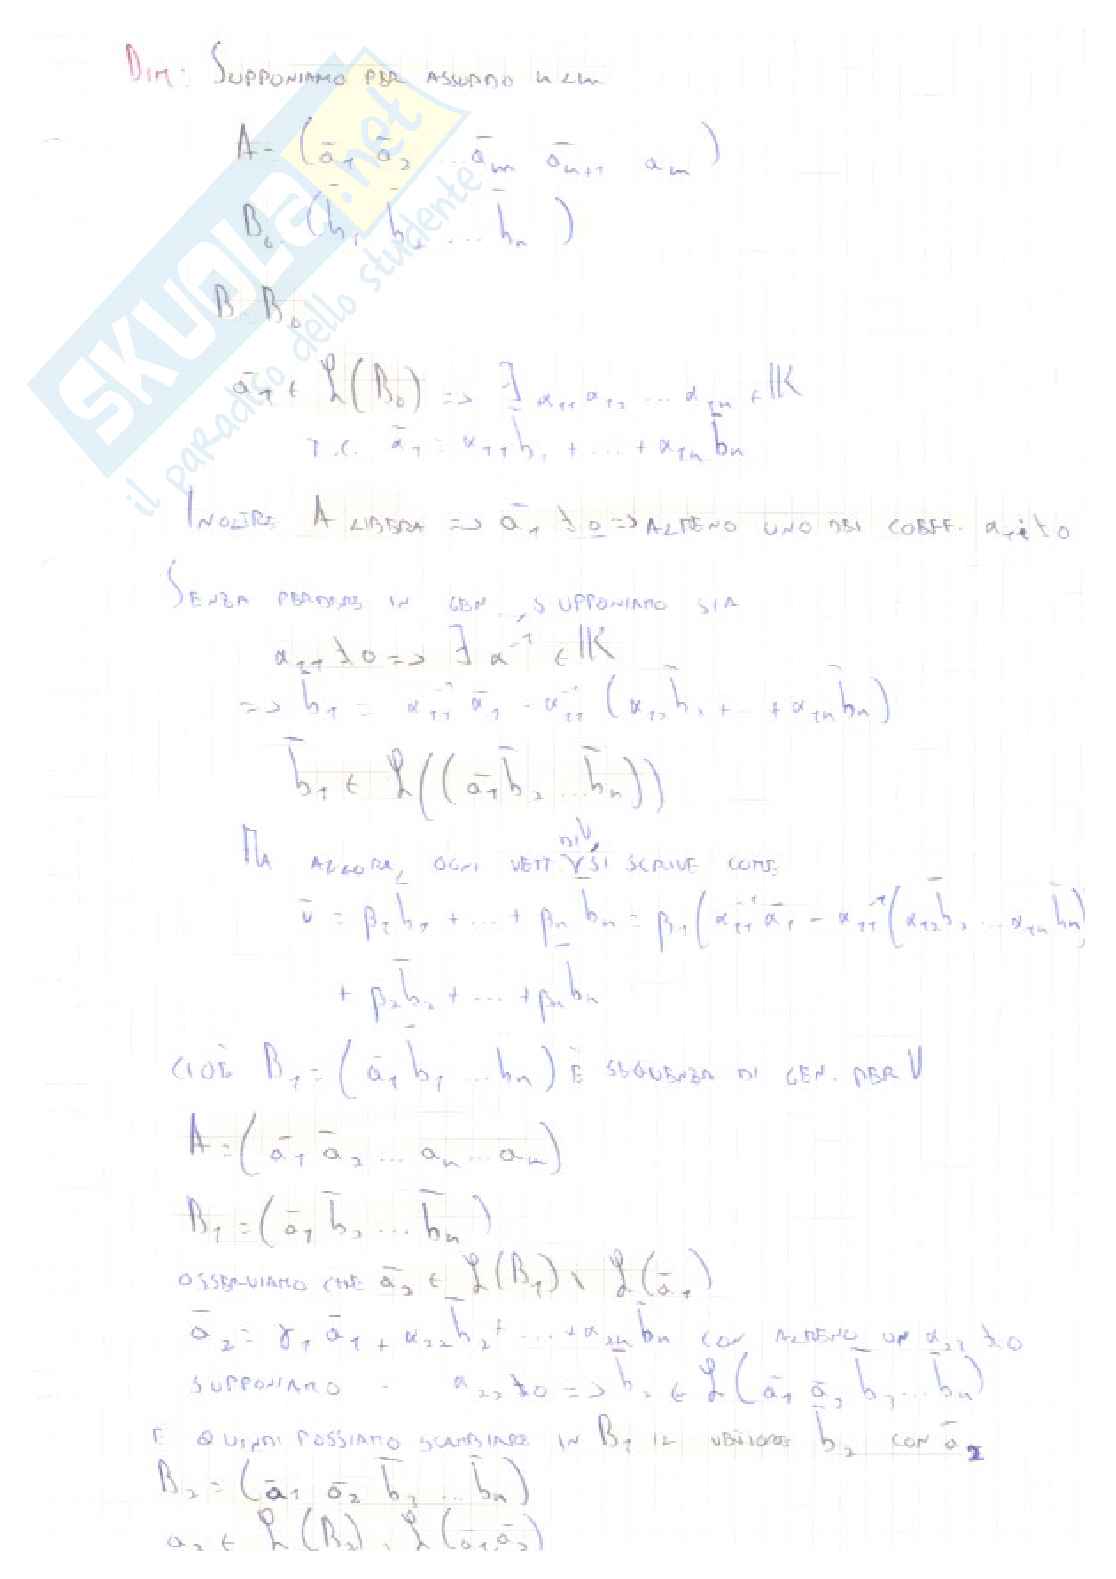 DIM: SUPPONIAMO PER ASSURDO n < m
A = (ā₁ ā₂ ... āₙ āₙ₊₁ aₘ)
B₀ (b̄₁ b̄₂ ... b̄ₙ)
B B₀
ā₁ ∈ ℒ(B₀) => ∃ α₁₁ α₁₂ ... α₁ₙ ∈ 𝕂
T.C. ā₁ = α₁₁b̄₁ + ... + α₁ₙb̄ₙ
INOLTRE A LIBERA => ā₁ ≠ 0 => ALMENO UNO DEI COEFF. α₁ᵢ ≠ 0
SENZA PERDERE IN GEN., SUPPONIAMO SIA
α₁₁ ≠ 0 => ∃ α⁻¹ ∈ 𝕂
=> b̄₁ = α₁₁⁻¹ ā₁ - α₁₁⁻¹ (α₁₂b̄₂ + ... + α₁ₙb̄ₙ)
b̄₁ ∈ ℒ((ā₁ b̄₂ ... b̄ₙ))
MA ALLORA, OGNI VETT v DI V, SI SCRIVE COME
v̄ = β₁b̄₁ + ... + βₙb̄ₙ = β₁(α₁₁⁻¹ā₁ - α₁₁⁻¹(α₁₂b̄₂ ... α₁ₙb̄ₙ)
+ β₂b̄₂ + ... + βₙb̄ₙ
CIOÈ B₁ = (ā₁ b̄₁ ... bₙ) È SEQUENZA DI GEN. PER V
A = (ā₁ ā₂ ... aₙ ... aₘ)
B₁ = (ā₁ b̄₂ ... b̄ₙ)
OSSERVIAMO CHE ā₂ ∈ ℒ(B₁) \ ℒ(ā₁)
ā₂ = γ₁ā₁ + α₂₂b̄₂ + ... + α₂ₙb̄ₙ CON ALMENO UN α₂₂ ≠ 0
SUPPONIAMO α₂₂ ≠ 0 => b̄₂ ∈ ℒ(ā₁ ā₂ b̄₃ ... b̄ₙ)
E QUINDI POSSIAMO SCAMBIARE IN B₁ IL VETTORE b̄₂ CON ā₂
B₂ = (ā₁ ā₂ b̄₃ ... b̄ₙ)
a₃ ∈ ℒ(B₂) \ ℒ(ā₁ ā₂)
SKUOLA.net
il paradiso dello studente